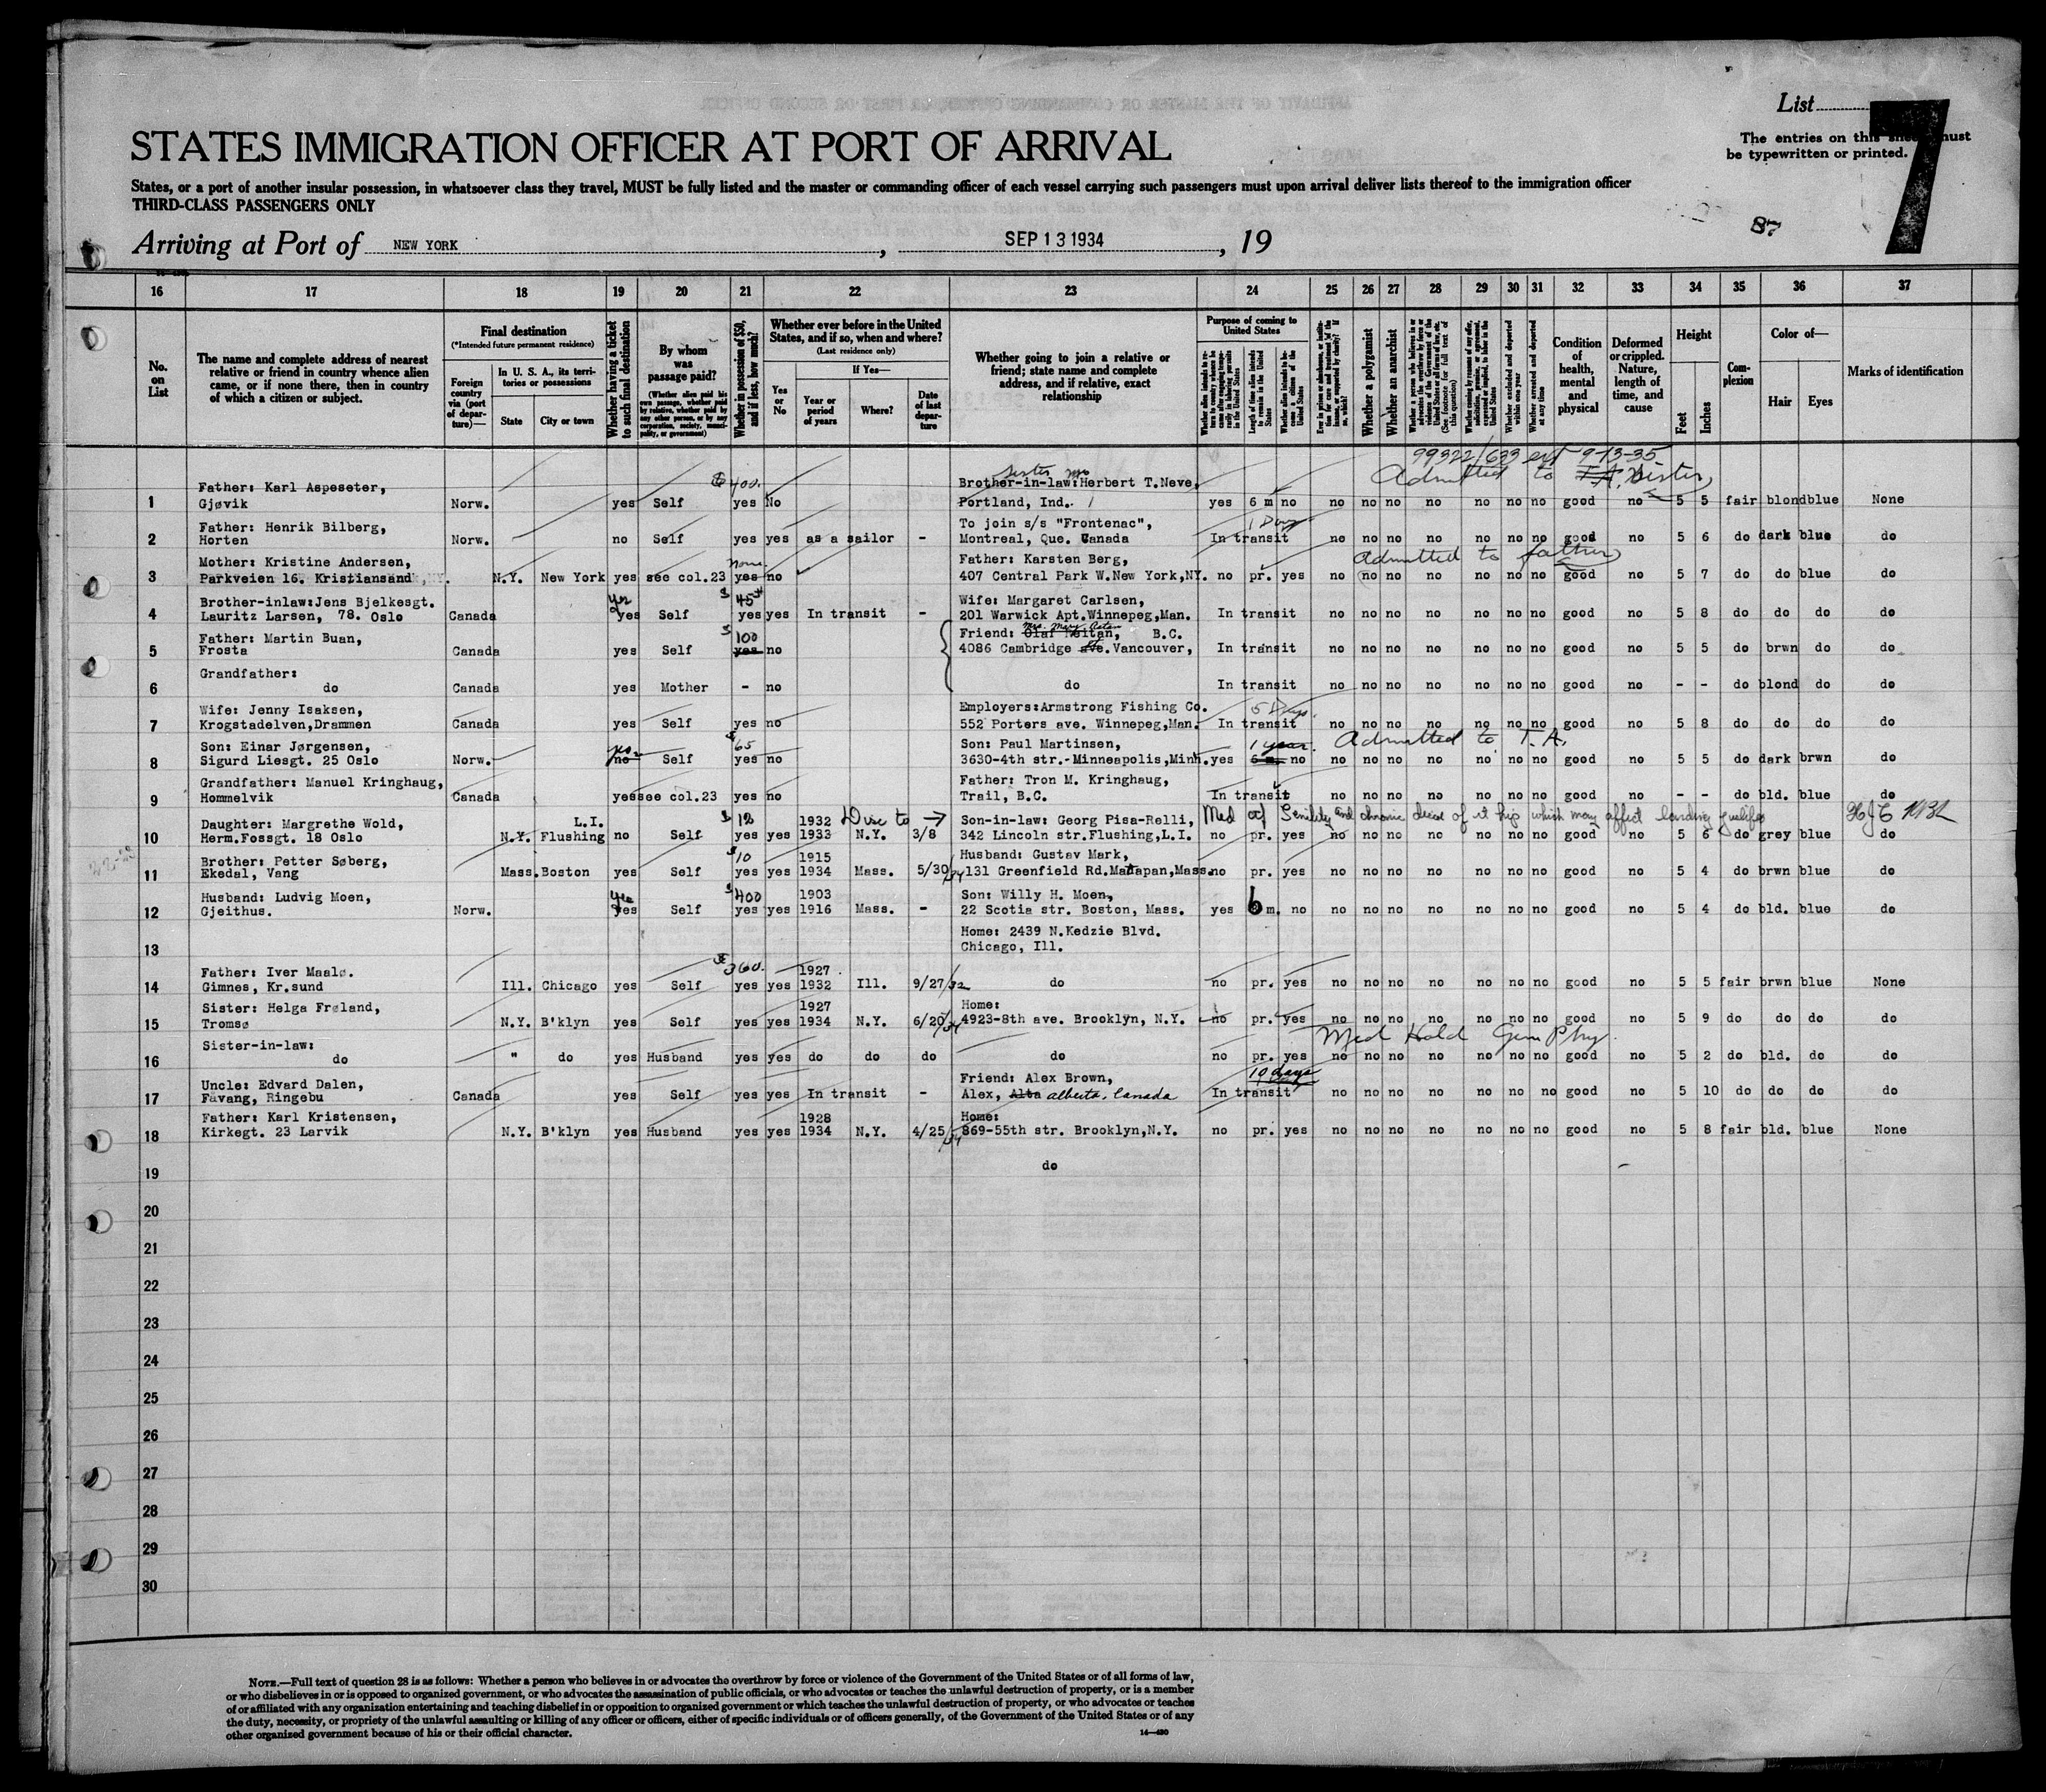 List
7
The entries on this sheet must
be typewritten or printed.
STATES IMMIGRATION OFFICER AT PORT OF ARRIVAL
States, or a port of another insular possession, in whatsoever class they travel, MUST be fully listed and the master or commanding officer of each vessel carrying such passengers must upon arrival deliver lists thereof to the immigration officer
THIRD-CLASS PASSENGERS ONLY
87
Arriving at Port of NEW YORK, SEP 13 1934, 19
16 17 18 19 20 21 22 23 24 25 26 27 28 29 30 31 32 33 34 35 36 37
No. on List
The name and complete address of nearest relative or friend in country whence alien came, or if none there, then in country of which a citizen or subject.
Final destination
(*Intended future permanent residence)
Foreign country via (port of departure)—
In U. S. A., its territories or possessions
State
City or town
Whether having a ticket to such final destination
By whom was passage paid?
(Whether alien paid his own passage, whether paid by relative, whether paid by any other person, or by any corporation, society, municipality, or government)
Whether in possession of $50, and if less, how much?
Whether ever before in the United States, and if so, when and where?
(Last residence only)
Yes or No
If Yes—
Year or period of years
Where?
Date of last departure
Whether going to join a relative or friend; state name and complete address, and if relative, exact relationship
Purpose of coming to United States
Length of time alien intends to remain in the United States
Whether alien intends to become a citizen of the United States
Whether a polygamist
Whether an anarchist
(See footnote for full text of this question)
Whether excluded and deported within one year
Whether arrested and deported at any time
Condition of health, mental and physical
Deformed or crippled. Nature, length of time, and cause
Height
Feet
Inches
Complexion
Color of—
Hair
Eyes
Marks of identification
99322/633 ext 9-13-35
sister Mrs $400. Admitted to T.A. Sister
Father: Karl Aspeseter, Brother-in-law:Herbert T.Neve,
1 Gjøvik Norw. yes Self yes No Portland, Ind. yes 6 m no no no no no no no no good no 5 5 fair blond blue None
Father: Henrik Bilberg, To join s/s "Frontenac", 1 Day
2 Horten Norw. no Self yes yes as a sailor - Montreal, Que. Canada In transit no no no no no no no good no 5 6 do dark blue do
Mother: Kristine Andersen, none Father: Karsten Berg, Admitted to father
3 Parkveien 16. Kristiansand N.Y. New York yes see col.23 yes no 407 Central Park W.New York,NY. no pr. yes no no no no no no no good no 5 7 do do blue do
Brother-inlaw:Jens Bjelkesgt. yes $45 Wife: Margaret Carlsen,
4 Lauritz Larsen, 78. Oslo Canada yes Self yes yes In transit - 201 Warwick Apt.Winnepeg,Man. In transit no no no no no no no good no 5 8 do do do do
Father: Martin Buan, $100 Friend: Olaf Moitan, B.C.
5 Frosta Canada yes Self yes no 4086 Cambridge ave. Vancouver, In transit no no no no no no no good no 5 5 do brwn do do
Grandfather:
6 do Canada yes Mother - no do In transit no no no no no no no good no - - do blond do do
Wife: Jenny Isaksen, Employers:Armstrong Fishing Co. 5 Days
7 Krogstadelven,Drammen Canada yes Self yes no 552 Porters ave. Winnepeg,Man. In transit no no no no no no no good no 5 8 do do do do
Son: Einar Jørgensen, yes $65 Son: Paul Martinsen, 1 year. Admitted to T.A.
8 Sigurd Liesgt. 25 Oslo Norw. no Self yes no 3630-4th str.-Minneapolis,Minn. yes 6 m. no no no no no no no no good no 5 5 do dark brwn do
Grandfather: Manuel Kringhaug, Father: Tron M. Kringhaug,
9 Hommelvik Canada yes see col.23 yes no Trail, B.C. In transit no no no no no no no good no - - do bld. blue do
Daughter: Margrethe Wold, L.I. $12 1932 Son-in-law: Georg Pisa-Relli, Med cf Senility and chronic which may affect landing
10 Herm.Fossgt. 18 Oslo N.Y. Flushing no Self yes yes 1933 N.Y. 3/8 342 Lincoln str.Flushing,L.I. no pr. yes no no no no no no no good no 5 5 do grey blue do
Brother: Petter Søberg, $10 1915 Husband: Gustav Mark,
11 Ekedal, Vang Mass. Boston yes Self yes yes 1934 Mass. 5/30/34 131 Greenfield Rd.Matapan,Mass. no pr. yes no no no no no no no good no 5 4 do brwn blue do
Husband: Ludvig Moen, yes $400 1903 Son: Willy H. Moen,
12 Gjeithus. Norw. yes Self yes yes 1916 Mass. - 22 Scotia str. Boston, Mass. yes 6 m. no no no no no no no no good no 5 4 do bld. blue do
Home: 2439 N.Kedzie Blvd.
13 Chicago, Ill.
Father: Iver Maalø. $360. 1927
14 Gimnes, Kr.sund Ill. Chicago yes Self yes yes 1932 Ill. 9/27/32 do no pr. yes no no no no no no no good no 5 5 fair brwn blue None
Sister: Helga Frøland, 1927 Home:
15 Tromsø N.Y. B'klyn yes Self yes yes 1934 N.Y. 6/20/34 4923-8th ave. Brooklyn, N.Y. no pr. yes no no no no no no no good no 5 9 do do do do
Sister-in-law: Med Hold Gen Phy.
16 do " do yes Husband yes yes do do do do no pr. yes no no no no no no no good no 5 2 do bld. do do
Uncle: Edvard Dalen, Friend: Alex Brown, 10 days
17 Favang, Ringebu Canada yes Self yes yes In transit - Alex, Alta alberta, Canada In transit no no no no no no no good no 5 10 do do do do
Father: Karl Kristensen, 1928 Home:
18 Kirkegt. 23 Larvik N.Y. B'klyn yes Husband yes yes 1934 N.Y. 4/25/34 869-55th str. Brooklyn,N.Y. no pr. yes no no no no no no no good no 5 8 fair bld. blue None
19 do
20
21
22
23
24
25
26
27
28
29
30
NOTE.—Full text of question 28 is as follows: Whether a person who believes in or advocates the overthrow by force or violence of the Government of the United States or of all forms of law,
or who disbelieves in or is opposed to organized government, or who advocates the assassination of public officials, or who advocates or teaches the unlawful destruction of property, or is a member
of or affiliated with any organization entertaining and teaching disbelief in or opposition to organized government or which teaches the unlawful destruction of property, or who advocates or teaches
the duty, necessity, or propriety of the unlawful assaulting or killing of any officer or officers, either of specific individuals or of officers generally, of the Government of the United States or of any
other organized government because of his or their official character.
14—430